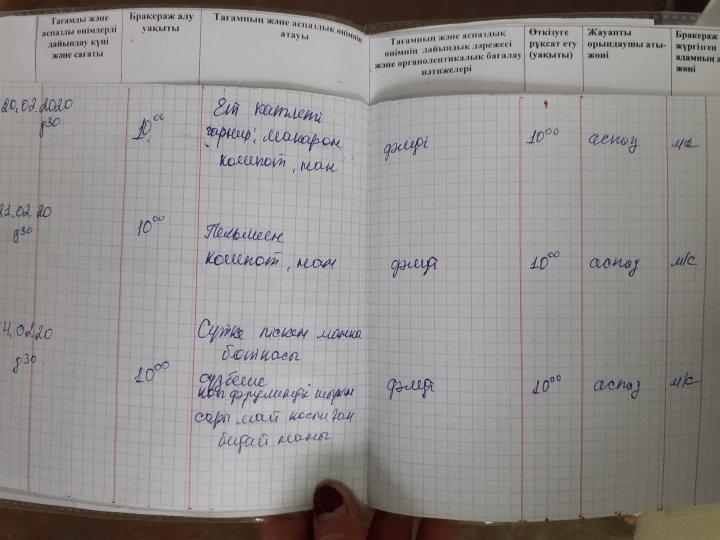 Тағамды және аспазды өнімдерді дайындау күні және сағаты
Бракераж алу уақыты
Тағамның және аспаздық өнімнің атауы
Тағамның және аспаздық өнімнің дайындық дәрежесі және органолептикалық бағалау нәтижелері
Өткізуге рұқсат ету (уақыты)
Жауапты орындаушы аты-жөні
Бракераж жүргізген адамның а жөні
20.02.2020
930
10 00
Ет катлеті
гарнир: макарон
компот, нан
дәмді
10 00
аспаз
м/с
21.02.20
930
10 00
Пельмен
компот, нан
дәмді
10 00
аспаз
м/с
4.02.20
930
10 00
Сүтке піскен манка
ботқасы
сүзбеше
сары май қосылған
бидай наны
дәмді
10 00
аспаз
м/с